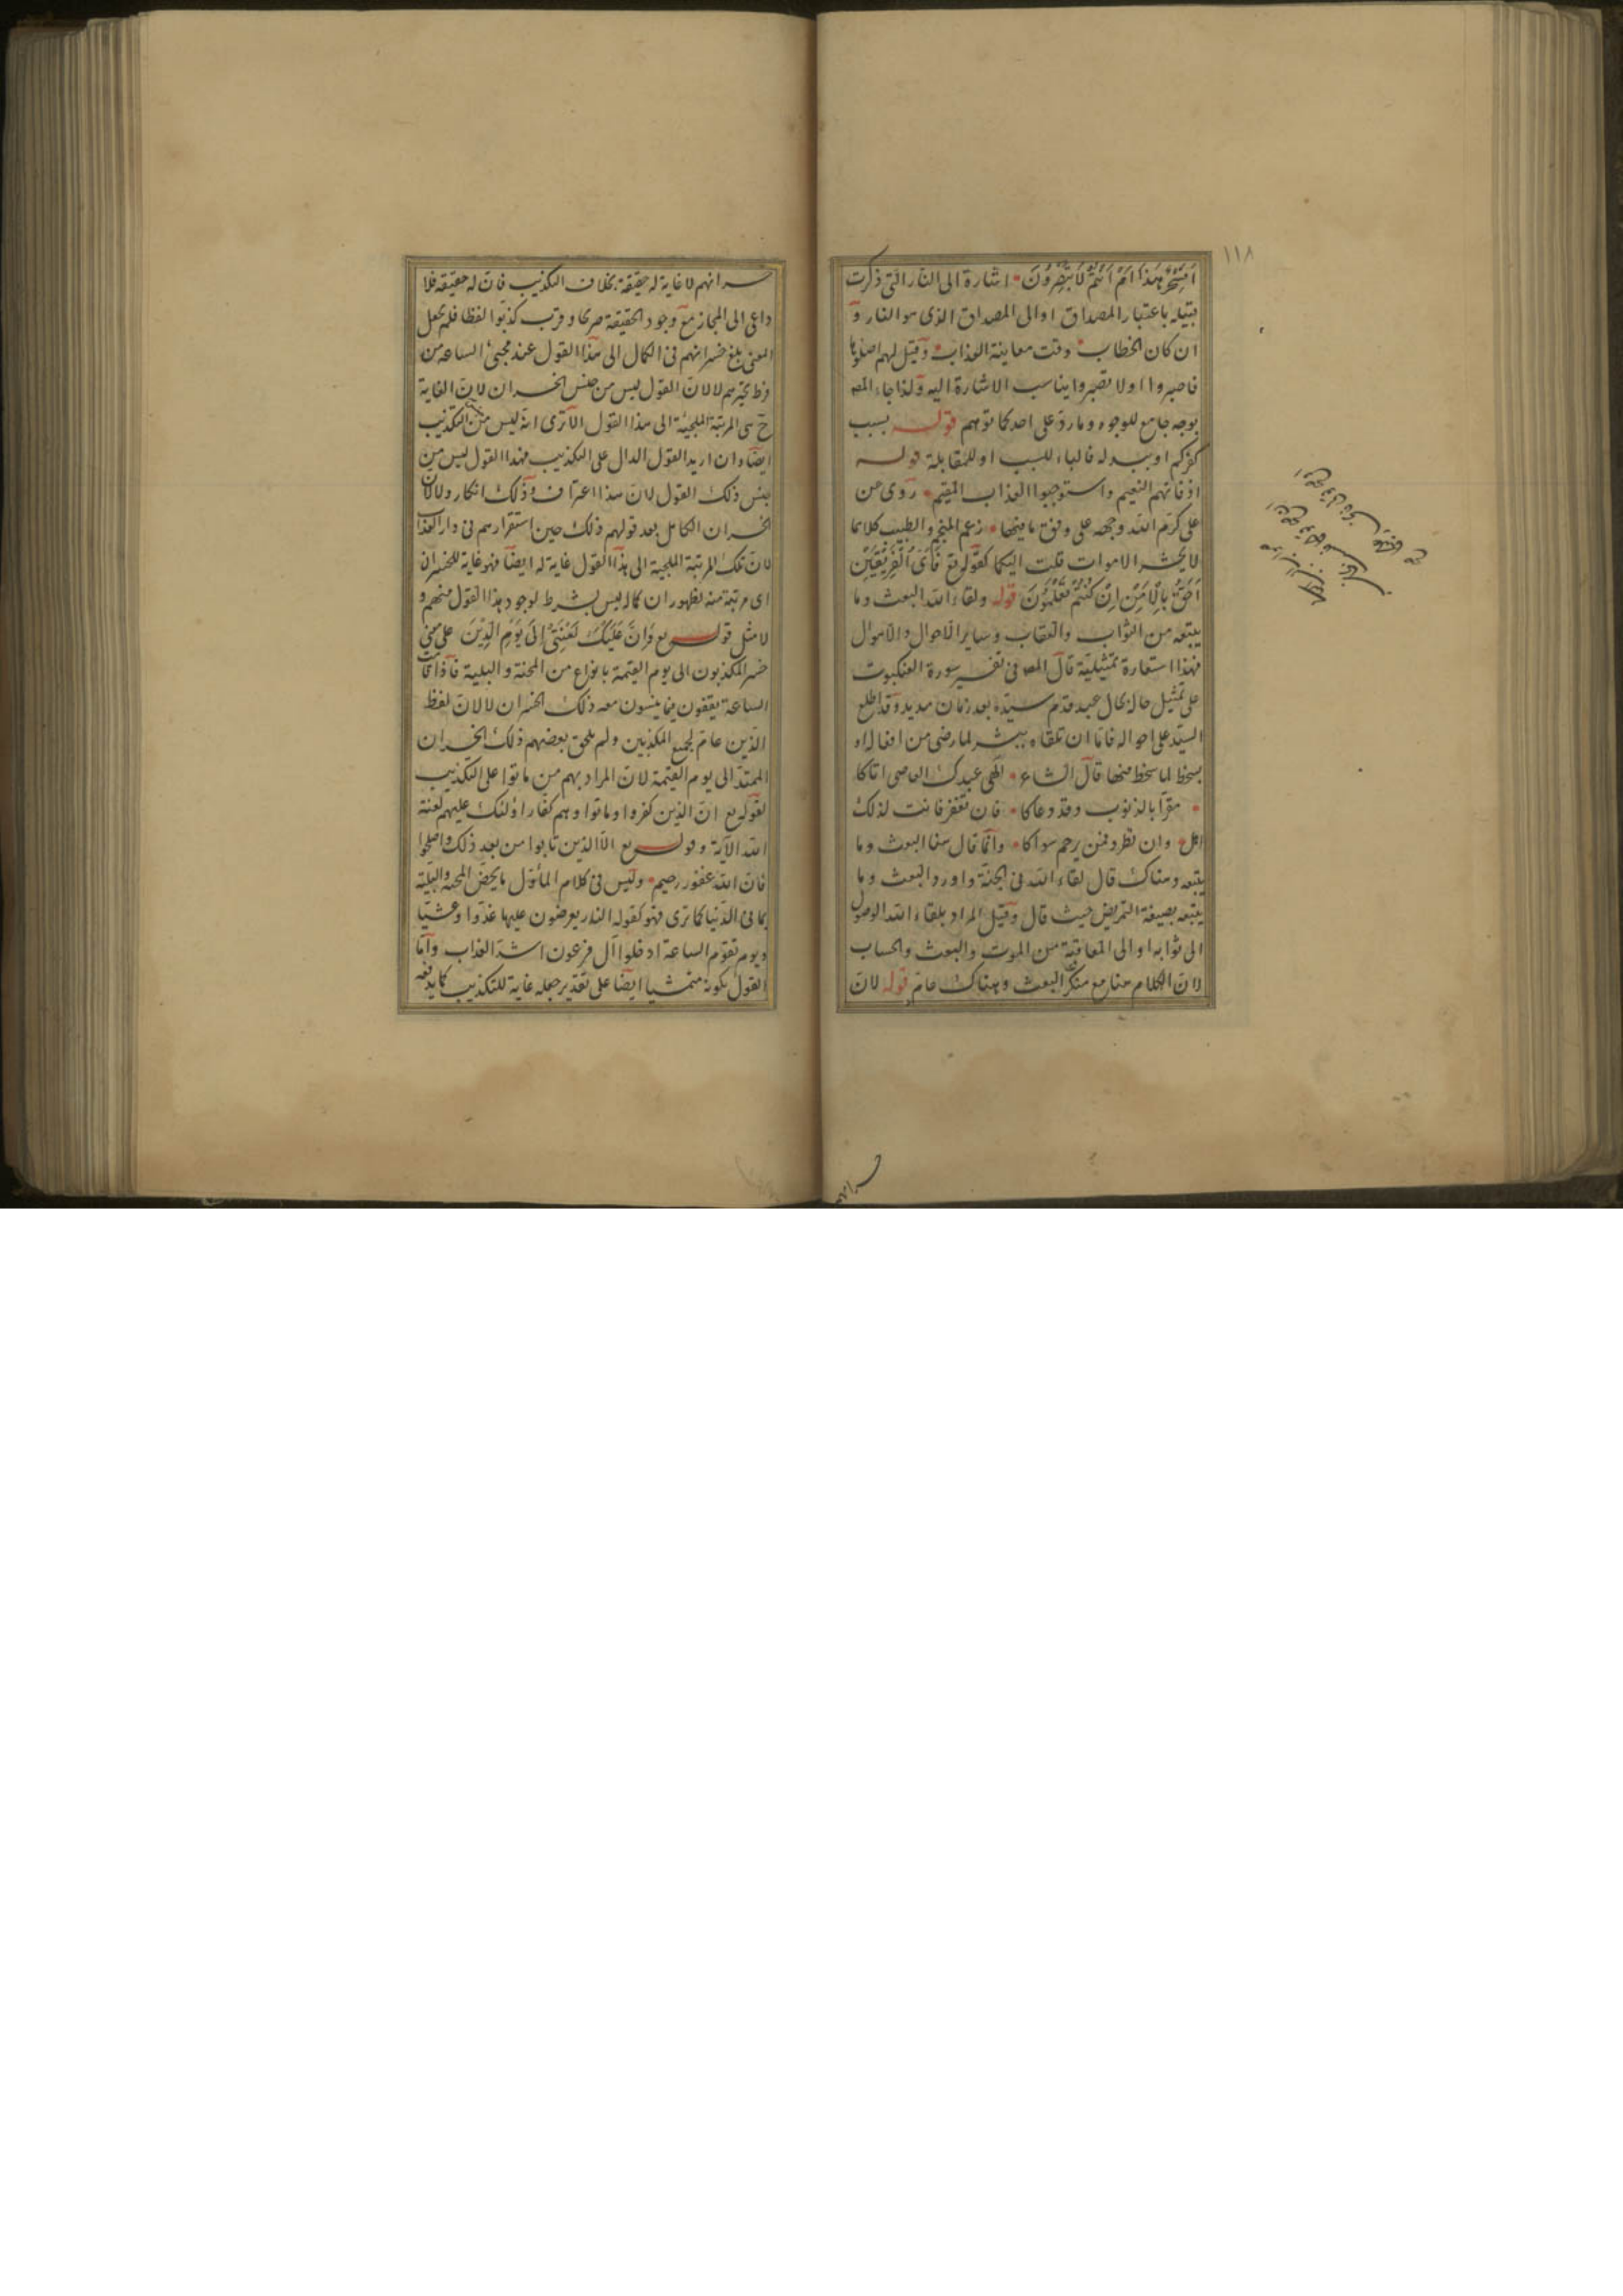 ١١٨
اَفَسِحْرٌ هٰذَا اَمْ اَنْتُمْ لَا تُبْصِرُونَ اشارة الى النار التى ذكرت
قبيله باعتبار المصداق او الى المصداق الذى هو النار و
ان كان الخطاب وقت معاينة العذاب وقيل لهم اصلوها
فاصبروا او لا تصبروا يناسب الاشارة اليه ولذا جاء المص
بوجه جامع للوجوه وما ردّ على احد كما توهم قوله بسبب
كفركم او ببدله فالباء للسبب او للمقابلة قوله
اذ فاتهم النعيم واستوجبوا العذاب المقيم روى عن
على كرّم الله وجهه على وفق ما فيها زعم المنجم والطبيب كلاهما
لا يحشر الاموات قلت اليكما كقوله تع فَأَىُّ الْفَرِيقَيْنِ
اَحَقُّ بِالْاَمْنِ اِنْ كُنْتُمْ تَعْلَمُونَ قوله ولقاء الله البعث وما
يتبعه من الثواب والعقاب وساير الاحوال والاهوال
فهذا استعارة تمثيلية قال المص فى تفسير سورة العنكبوت
على تمثيل حاله بحال عبد قدم سيّده بعد زمان مديد وقد اطلع
السيّد على احواله فاما ان تلقاه ببشر لما رضى من افعاله او
بسخط لما سخط منها قال الشاعر الهى عبدك العاصى اتاكا
مقرّا بالذنوب وقد دعاكا فان تغفر فانت لذلك
اهل وان تطرد فمن يرحم سواكا وانّما قال هنا البعث وما
يتبعه وهناك قال لقاء الله فى الجنة واورد البعث وما
يتبعه بصيغة التمريض حيث قال وقيل المراد بلقاء الله الوصول
الى ثوابه او الى العاقبة من الموت والبعث والحساب
لان الكلام هنا مع منكر البعث وهناك عام قوله لان
خسرانهم لا غاية له حقيقة بخلاف التكذيب فانّ له حقيقة فلا
داعى الى المجاز مع وجود الحقيقة صريحا وقرب كذّبوا لفظا فلم يجعل
المعنى بلغ خسرانهم فى الكمال الى هذا القول عند مجئ الساعة من
فرط تحيرهم لا لانّ القول ليس من جنس الخسران لانّ الغاية
ح هى المرتبة الملجئة الى هذا القول الا ترى انه ليس من التكذيب
ايضا وان اريد القول الدال على التكذيب فهذا القول ليس من
جنس ذلك القول لانّ هذا اعتراف وذلك انكار ولا لانّ
الخسران الكامل بعد قولهم ذلك حين استقرارهم فى دار العذاب
لانّ تلك المرتبة الملجئة الى هذا القول غاية له ايضا فهو غاية للخسران
اى مرتبة منه لظهور ان كماله ليس بشرط لوجود هذا القول منهم و
لا مثل قوله تع وَاِنَّ عَلَيْكَ لَعْنَتِى اِلَى يَوْمِ الدِّينِ على معنى
خسر المكذبون الى يوم القيمة بانواع من المحنة والبلية فاذا قامت
الساعة يقعون فيما ينسون معه ذلك الخسران لا لانّ لفظ
الذين عام لجميع المكذبين ولم يلحق بعضهم ذلك الخسران
الممتدّ الى يوم القيمة لانّ المراد بهم من ماتوا على التكذيب
لقوله تع انّ الذين كفروا وماتوا وهم كفار اولئك عليهم لعنة
الله الآية وقوله تع الا الذين تابوا من بعد ذلك واصلحوا
فان الله غفور رحيم وليس فى كلام المأوّل ما يخصّ المحنة والبلية
بما فى الدنيا كما ترى فهو كقوله النار يعرضون عليها غدوّا وعشيّا
ويوم تقوم الساعة ادخلوا آل فرعون اشدّ العذاب وامّا
القول بكونه متمشيا ايضا على تقدير جعله غاية للتكذيب كما يدفعه